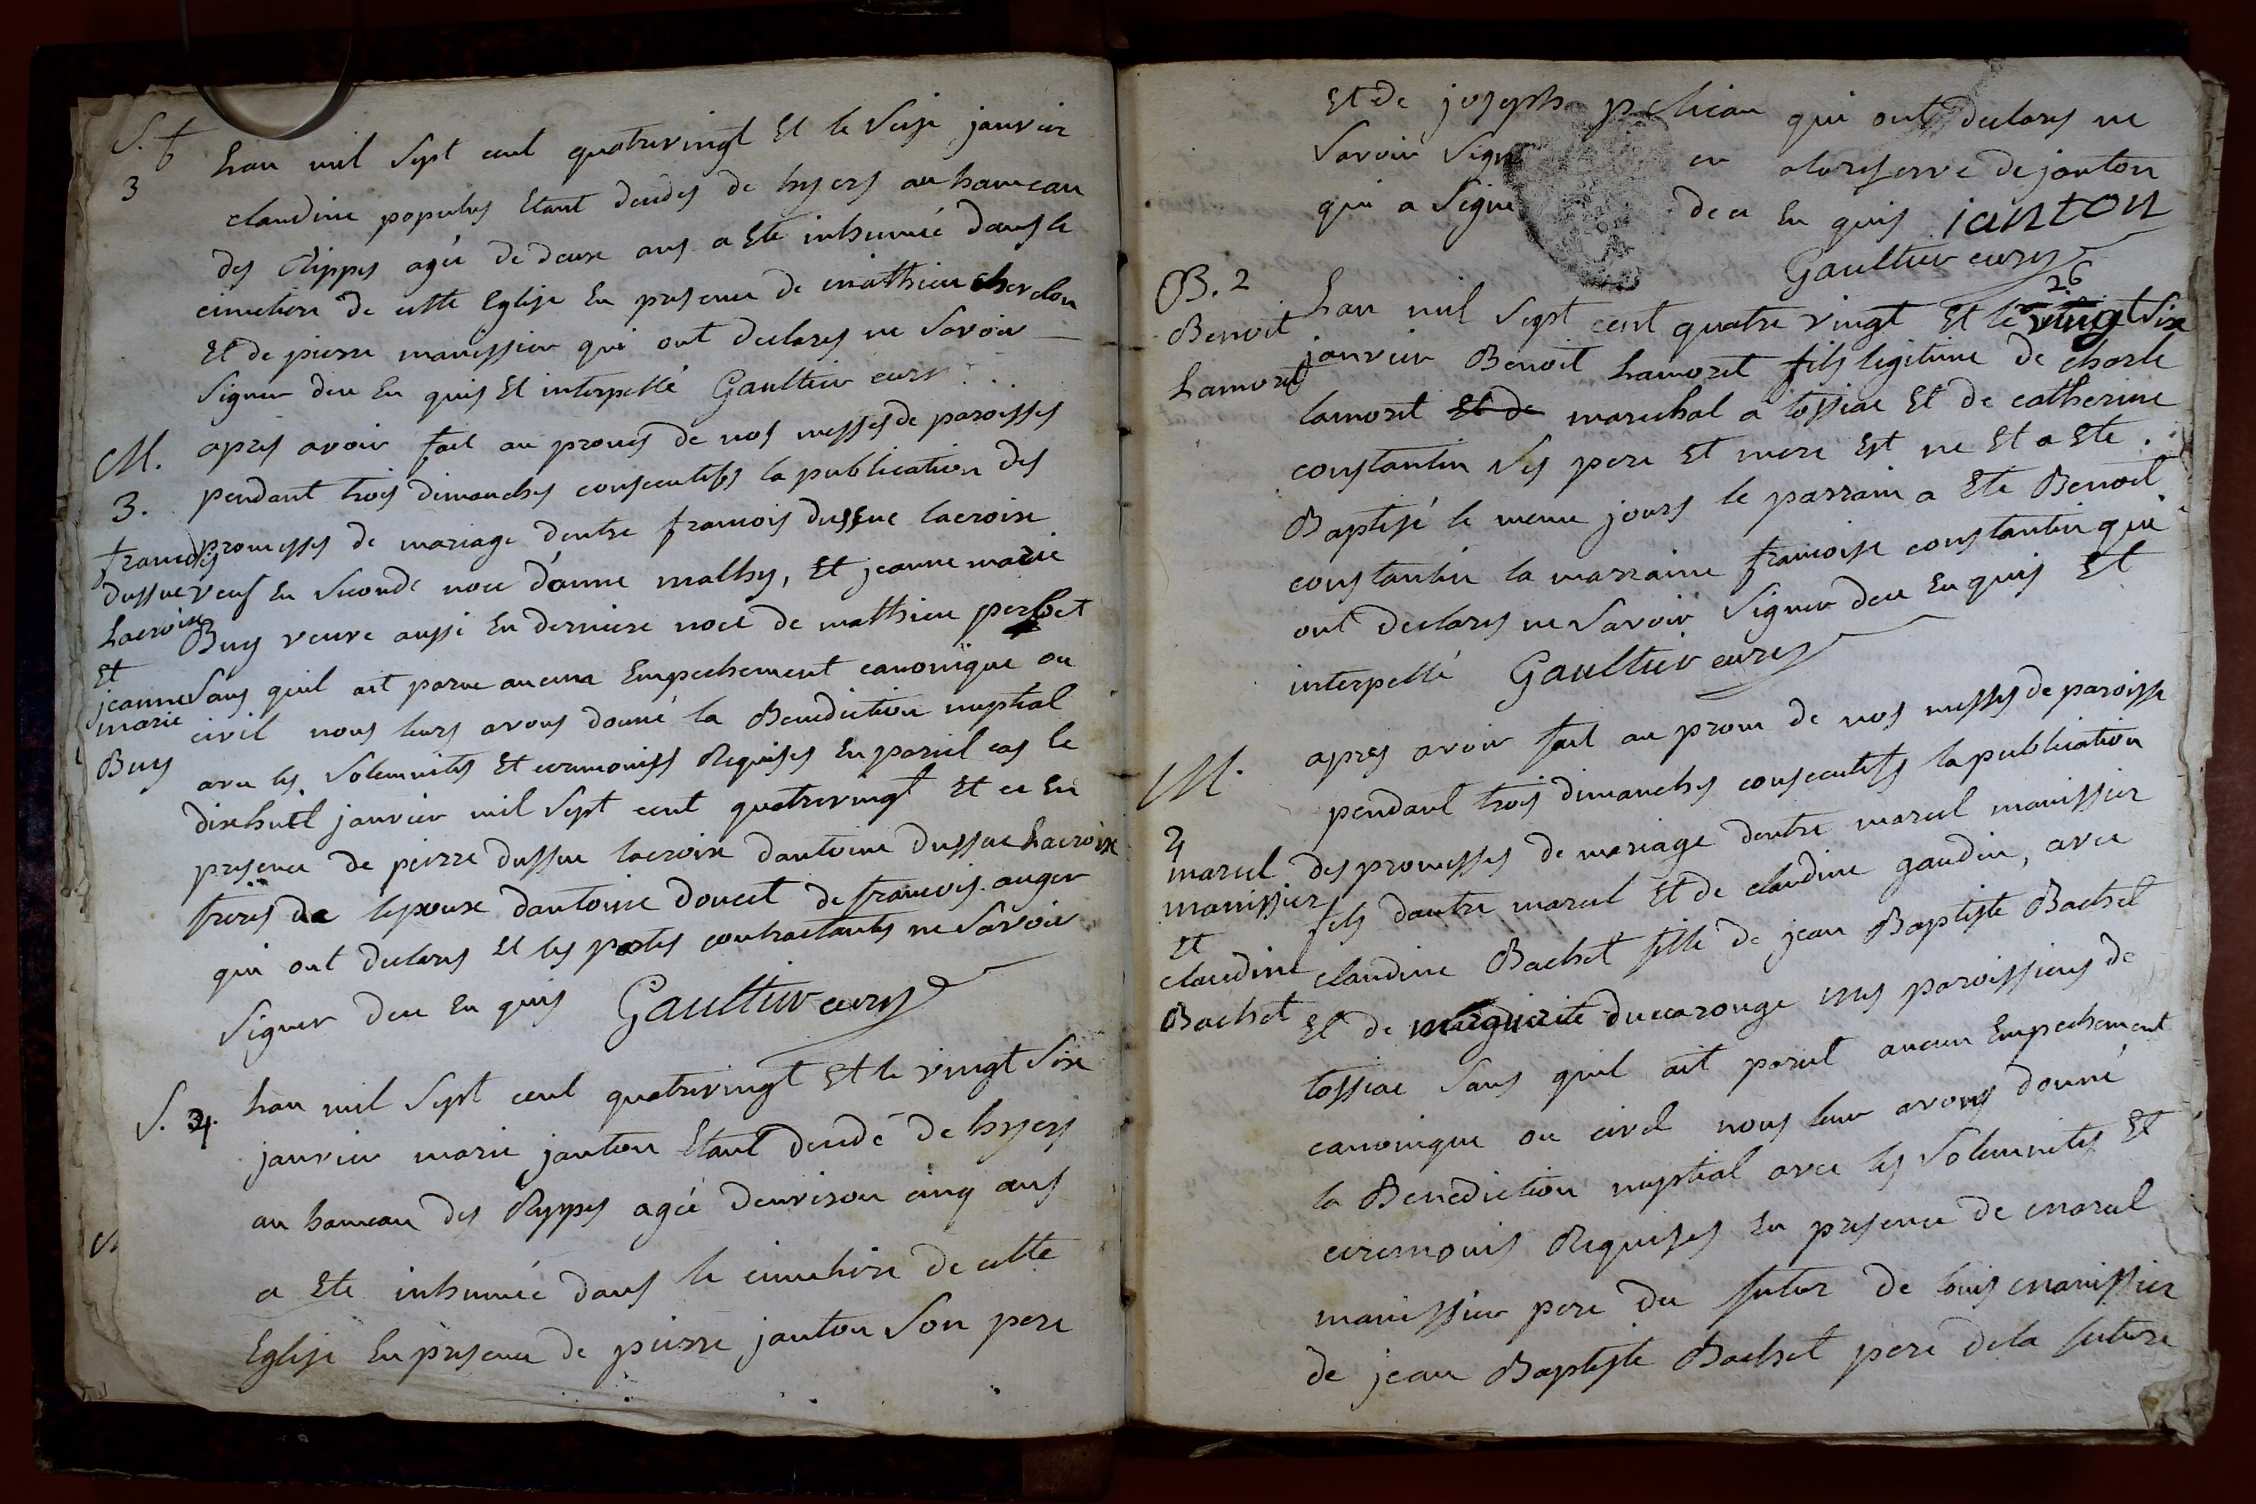 S. t
3
Lan mil Sept cent quatrevingt Et le Seise janvier
claudine populus Etant decedes de hyers au hameau
des Rippes agée de deux ans a Ete inhumée dans le
cimetiere de cette Eglise En presence de mathieu
Et de pierre manissier qui ont declares ne Savoir
Signer deu En quis Et interpellé Gaultier curé
M.
3.
francois
dussue
Lacroix
Et
jeanne
marie
Buy
apres avoir fait au prones de nos messes de paroisses
pendant trois dimanches consecutifs la publication des
promesses de mariage dentre francois dussue lacroix
veuf En Seconde noce d'anne mathy, Et jeanne marie
Buy veuve aussi En derniere noce de mathieu perbet
Sans quil ait parue aucuna Empechement canonique ou
civil nous leurs avons donné la Benediction nuptial
avec les Solemnites Et ceremonies Requises En pareil cas le
dixhuit janvier mil Sept cent quatrevingt Et ce En
presence de pierre dussue lacroix dantoine dussue Lacroix
freres de lepoux dantoine doucet de francois auger
qui ont declares Et les parties contractantes ne Savoir
Signer deu En quis Gaultier curé
S. 4.
Lan mil Sept cent quatrevingt Et le vingt Six
janvier marie janton Etant decedé de hyers
au hameau des Ryppes agée denviron cinq ans
a Ete inhumée dans le cimetiere de cette
Eglise En presence de pierre janton Son pere
Et de joseph pelican qui ont declares ne
Savoir Sign er alareserve de janton
qui a Signe de ce En quis janton
Gaultier curé
B. 2
Benoit
Lamoret
26
Lan mil Sept cent quatre vingt Et le vingt Six
janvier Benoit Lamoret fils legitime de charle
lamoret Et de marechal a tossiat Et de catherine
constantin Ses pere Et mere Est ne Et a Ete
Baptisé le meme jours le parrain a Ete Benoit
constantin la marraine francoise constantin qui
ont declares ne Savoir Signer deu En quis Et
interpellé Gaultier curé
M.
4
marcel
manissier
Et
claudine
Bachet
apres avoir fait au prone de nos messes de paroisse
pendant trois dimanches consecutifs la publication
des promesses de mariage dentre marcel manissier
fils dautre marcel Et de claudine gaudin, avec
claudine Bachet fille de jean Baptiste Bachet
Et de marguerite ducarouge mes paroissiens de
tossiat Sans quil ait parut aucun Empechement
canonique ou civil nous leur avons donné
la Benediction nuptial avec les Solemnites Et
ceremonies Requises En presence de marcel
manissier pere du futur de louis manissier
de jean Baptiste Bachet pere dela future